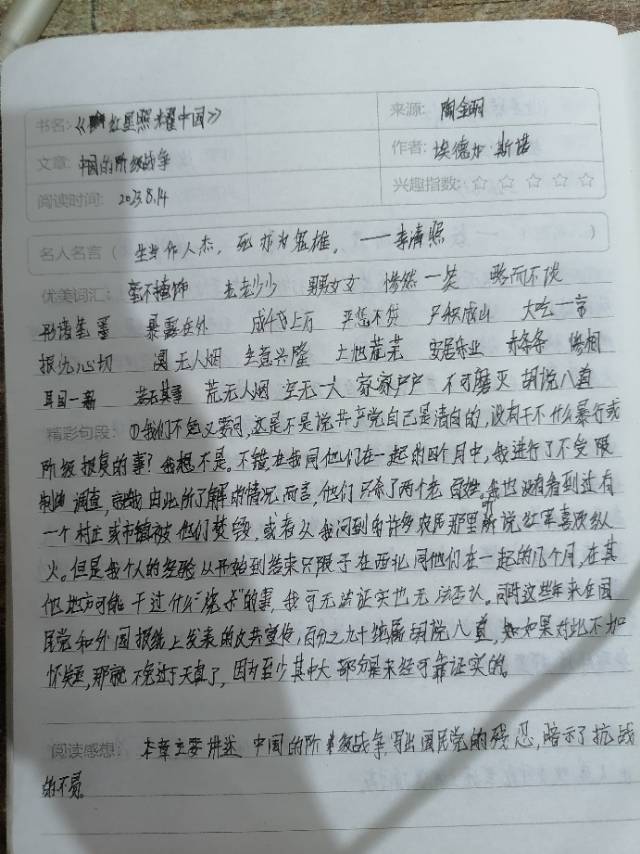 书名: 《红星照耀中国》 来源:
文章: 中国的阶级战争 作者: 埃德加·斯诺
阅读时间: 2023.8.14 兴趣指数: ☆ ☆ ☆ ☆ ☆
名人名言( 生当作人杰, 死亦为鬼雄。——李清照 )
优美词汇: 毫不掩饰 老老少少 男男女女 惨然一笑 略而不谈
形诸笔墨 暴露在外 成千上万 严惩不贷 尸积成山 大吃一惊
报仇心切 阒无人烟 生意兴隆 土地荒芜 安居乐业 赤条条
耳目一新 若无其事 荒无人烟 空无一人 家家户户 不可磨灭 胡说八道
精彩句段: ①我们不免又要问,这是不是说共产党自己是清白的,没有干不什么暴行或
阶级报复的事?我想不是。不错在我同他们在一起的四个月中,我进行了不受限
制的调查,就我由此所了解的情况而言,他们只杀了两个老百姓。我也没有看到过有
一个村庄或市镇被他们焚毁,或者从我问到的许多农民那里听说红军喜欢纵
火。但是我个人的经验从开始到结束只限于在西北同他们在一起的几个月,在其
他地方可能干过什么"烧杀"的事,我可无法证实也无法否认。同时这些年来在国
民党和外国报纸上发表的反共宣传,百分之九十纯属胡说八道,如果对此不加
怀疑,那就不免过于天真了,因为至少其中大部分是未经可靠证实的。
阅读感想: 本章主要讲述中国的阶级战争,写出国民党的残忍,暗示了抗战
的不易。